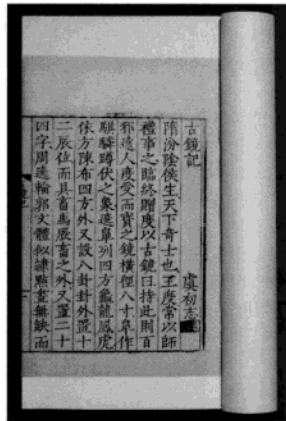 古鏡記
虞初志
隋汾陰侯生天下奇士也王度常以師
禮事之臨終贈度以古鏡曰持此則百
邪遠人度受而寶之鏡橫徑八寸鼻作
麒麟蹲伏之象遶鼻列四方龜龍鳳虎
依方陳布四方外又設八卦卦外置十
二辰位而具畜焉辰畜之外又置二十
四字周遶輪郭文體似隷點畫無缺而